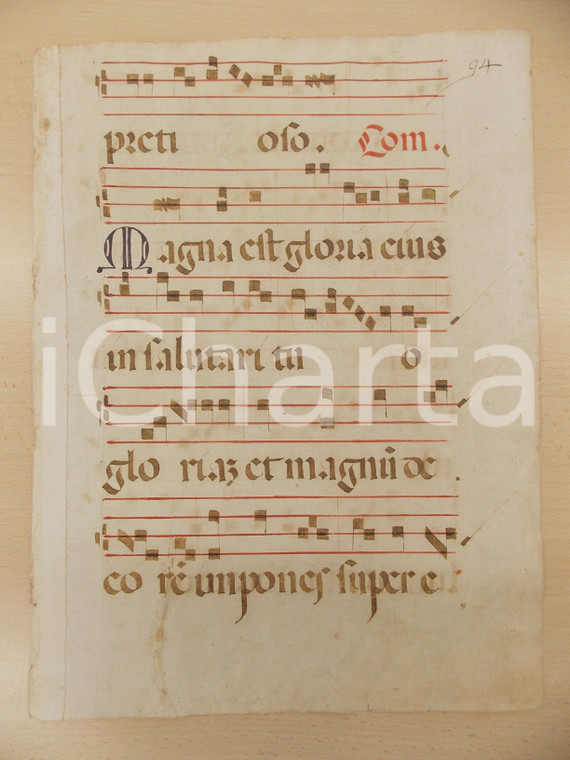 94
preti oso. Com.
Magna est gloria eius
in salutari tu o
glo riaȝ et magnũ de
co rē impones super e
iCharta